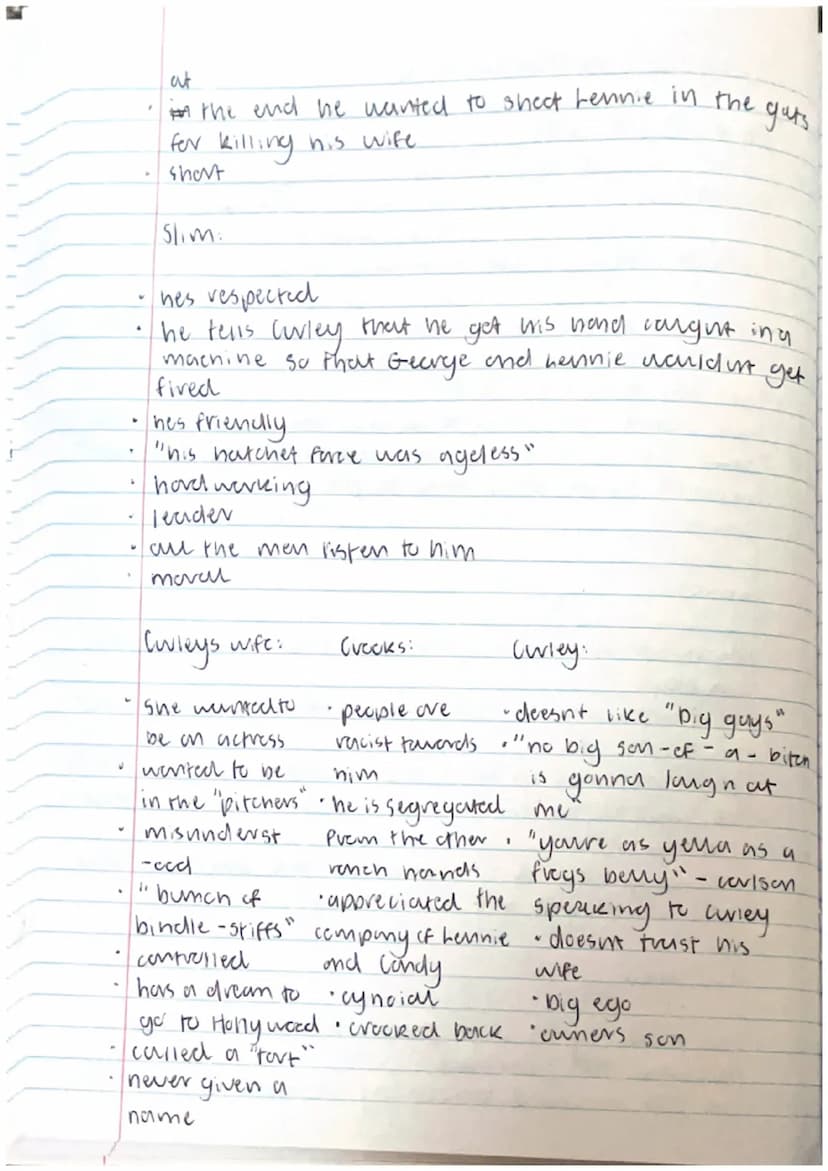 at
in the end he wanted to shoot Lennie in the guts
for killing his wife
· short
Slim:
· hes respected
· he tells Curley that he got his hand caught in a
machine so that George and Lennie wouldnt get
fired
· hes friendly
· "his hatchet face was ageless"
· hardworking
· leader
· all the men listen to him
· moral
Curleys wife:
· she wanted to
be an actress
· wanted to be
in the "pitchers"
· misunderst
-ood
· "bunch of
bindle-stiffs"
· controlled
· has a dream to
go to Hollywood
· called a "tart"
· never given a
name
Crooks:
· people are
racist towards
him
· he is segregated
from the other
ranch hands
· appreciated the
company of Lennie
and Candy
· cynoial
· crooked back
Curley:
· doesnt like "big guys"
· "no big son-of-a-bitch
is gonna laugh at
me"
· "youre as yella as a
frogs belly" - carlson
speaking to curley
· doesnt trust his
wife
· big ego
· owners son